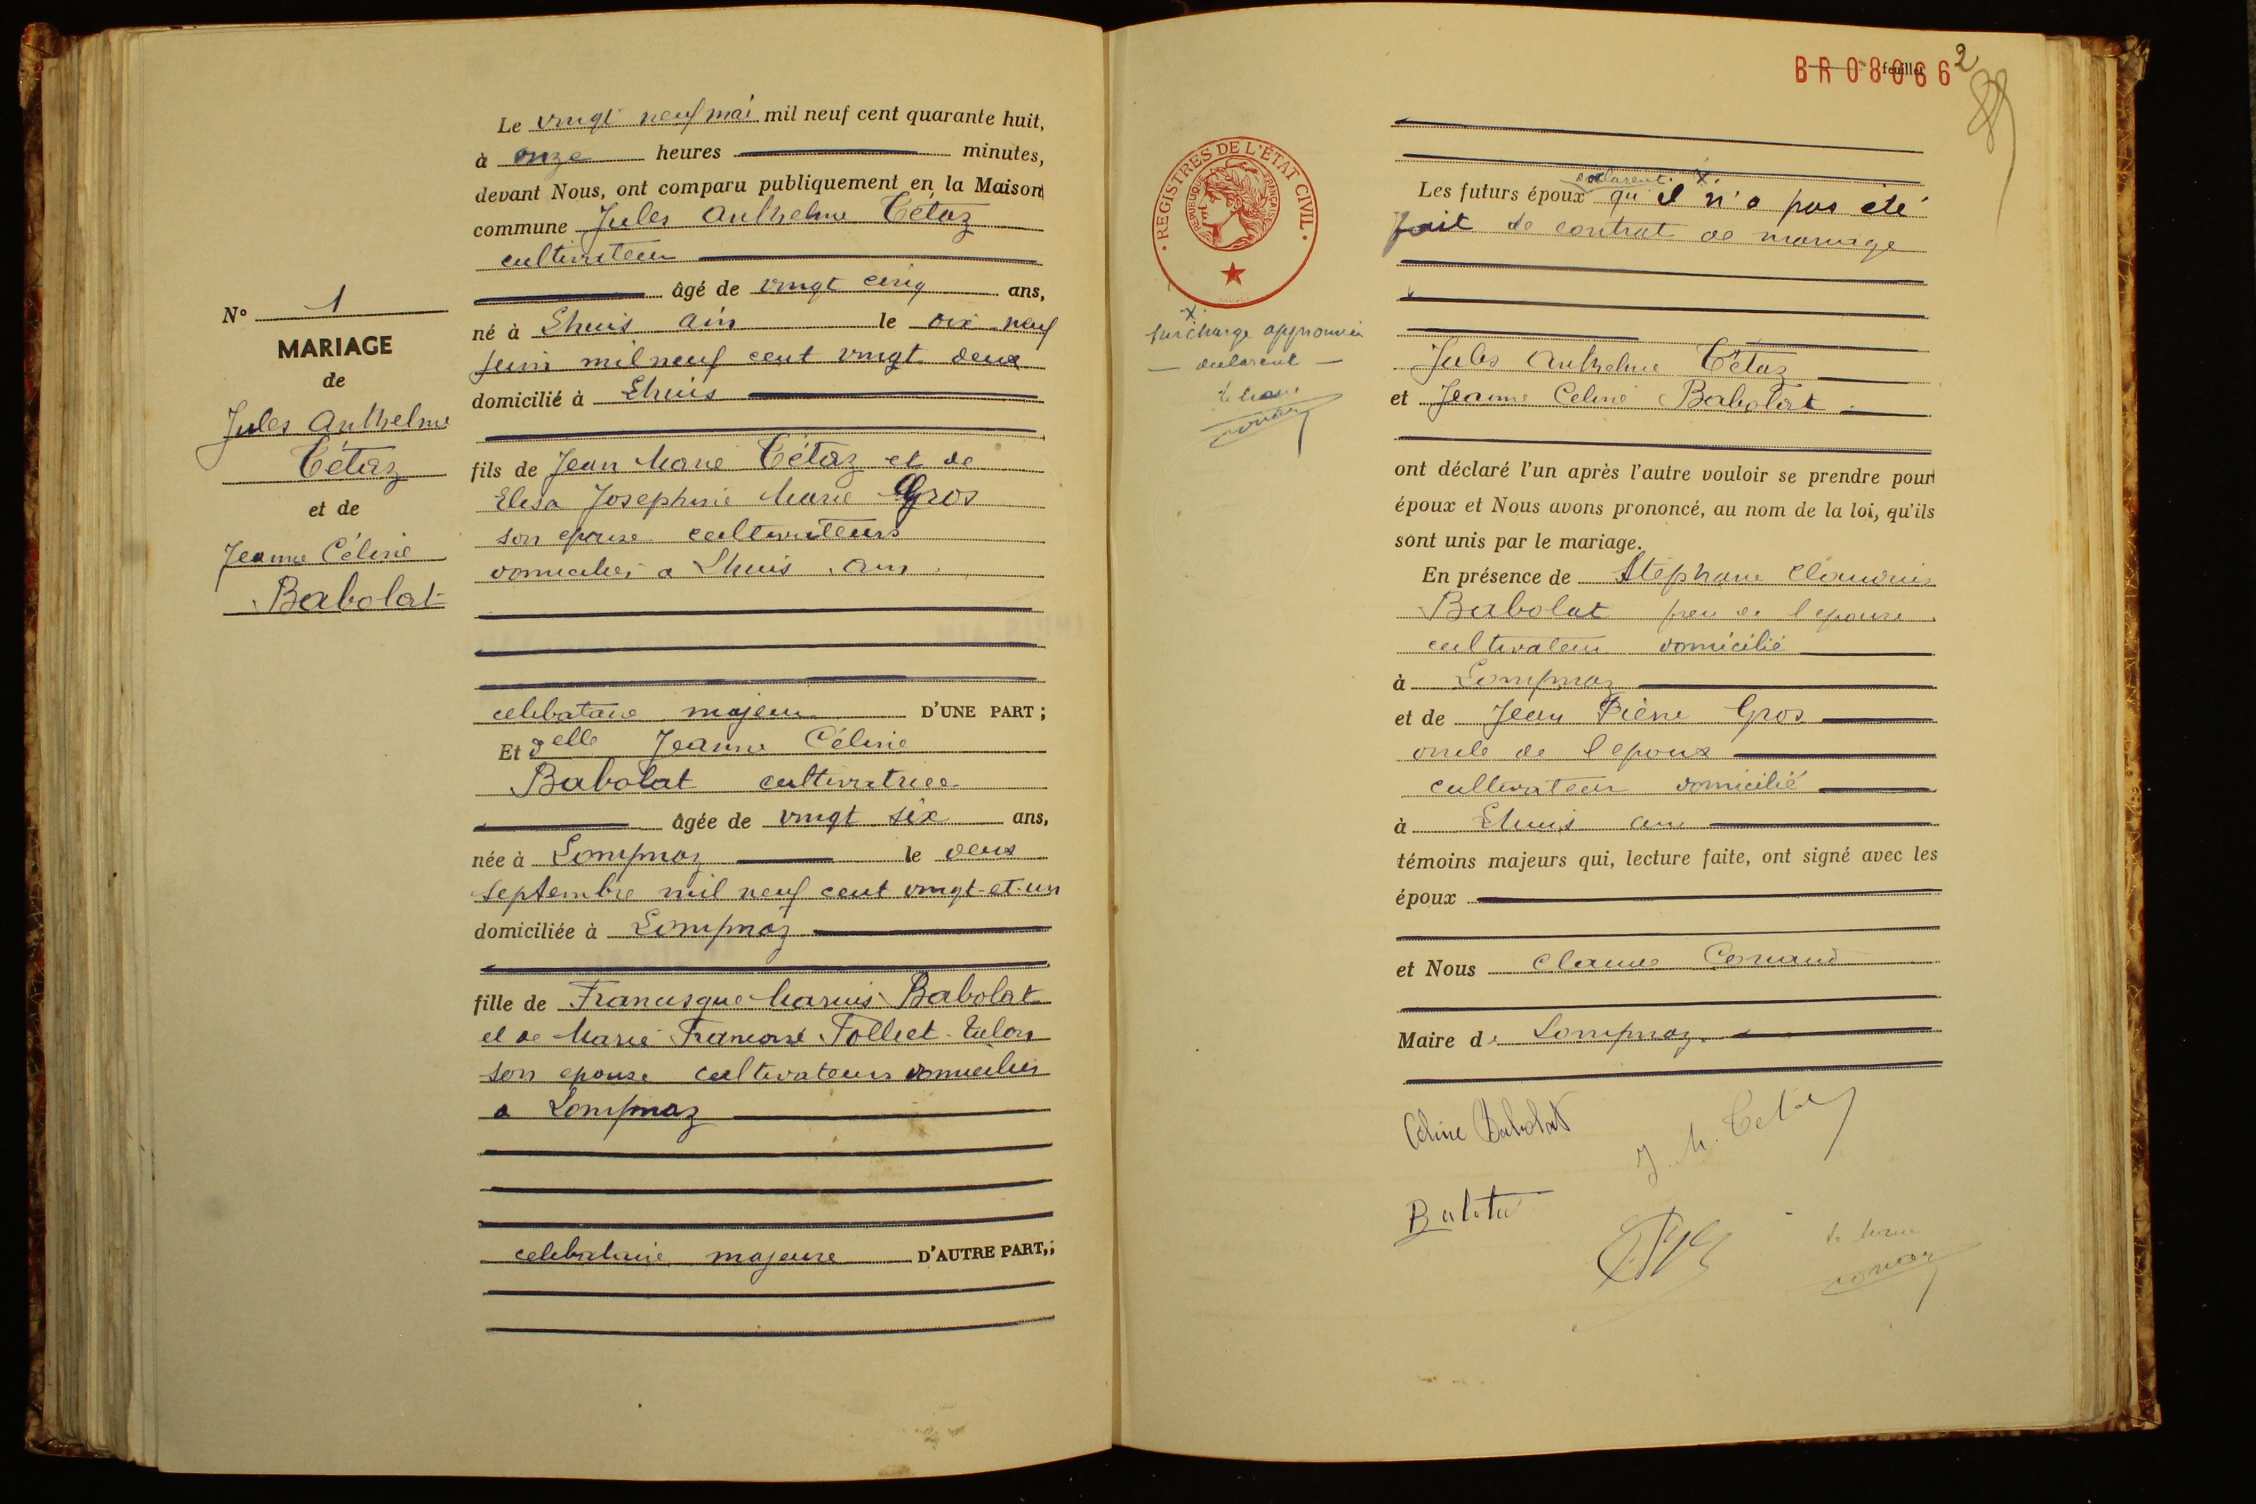 Le vingt neuf mai mil neuf cent quarante huit,
à onze heures minutes,
devant Nous, ont comparu publiquement en la Maison
commune Jules Anthelme Tétaz
cultivateur
âgé de vingt cinq ans,
né à Lhuis Ain le dix neuf
Juin mil neuf cent vingt deux
domicilié à Lhuis
fils de Jean Marie Tétaz et de
Elisa Josephine Marie Gros
son epouse cultivateurs
domiciliés a Lhuis Ain
celibataire majeur D'UNE PART ;
Et delle Jeanne Céline
Babolat cultivatrice
âgée de vingt six ans,
née à Lompnaz le deux
septembre mil neuf cent vingt-et-un
domiciliée à Lompnaz
fille de Francisque Marius Babolat
et de Marie Françoise Folliet-Talon
son epouse cultivateurs domiciliés
a Lompnaz
celibataire majeure D'AUTRE PART, ;
N° 1
MARIAGE
de
Jules Anthelme
Tétaz
et de
Jeanne Céline
Babolat
BR 08066
feuillet
2
REGISTRES DE L'ÉTAT CIVIL
REPUBLIQUE FRANÇAISE
x
surcharge approuvée
declarent
le maire
declarent x
Les futurs époux qu'il n'a pas été
fait de contrat de mariage
Jules Anthelme Tétaz
et Jeanne Celine Babolat
ont déclaré l'un après l'autre vouloir se prendre pour
époux et Nous avons prononcé, au nom de la loi, qu'ils
sont unis par le mariage.
En présence de Stéphane Claudius
Babolat frere de l epouse
cultivateur domicilié
à Lompnaz
et de Jean Pierre Gros
oncle de l epoux
cultivateur domicilié
à Lhuis Ain
témoins majeurs qui, lecture faite, ont signé avec les
époux
et Nous Claude Conand
Maire de Lompnaz
Céline Babolat
Le maire